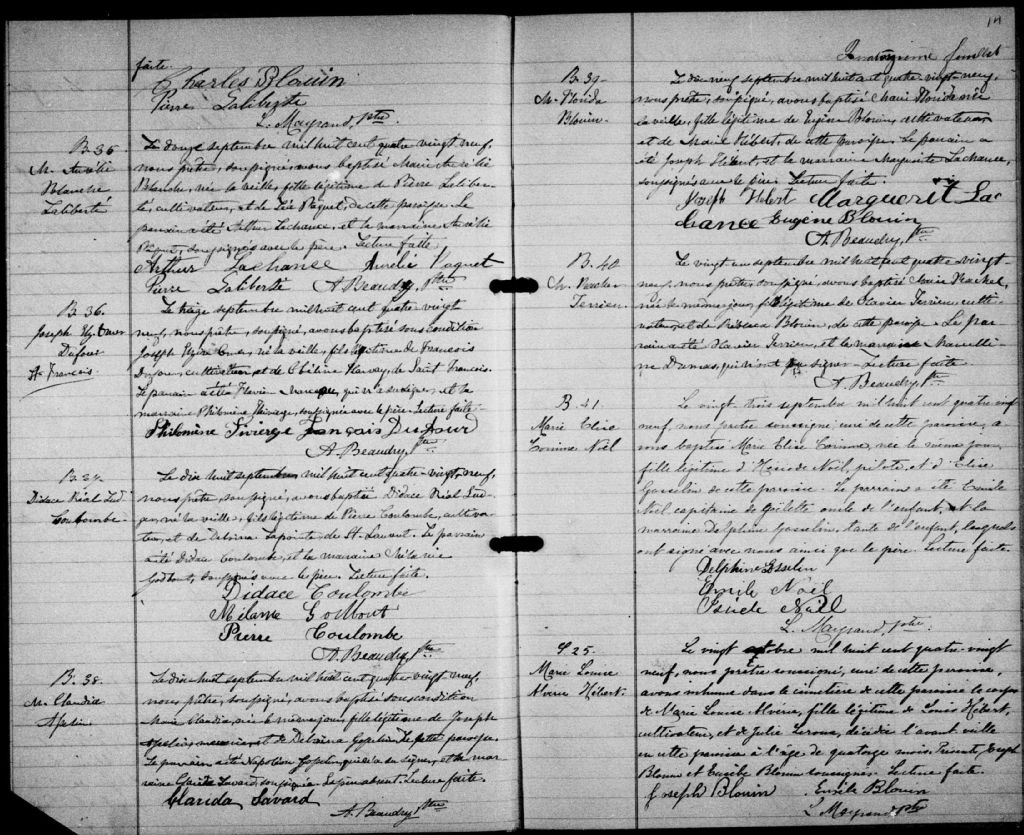 faite.
Charles Blouin
Pierre Laliberté
L. Mayrand, ptre.
B. 35
M. Aurélie
Blanche
Laliberté
Le douze septembre mil huit cent quatre vingt neuf,
nous prêtre, soussigné, avons baptisé Marie Aurélie
Blanche, née la veille, fille légitime de Pierre Laliber-
té, cultivateur, et de Paquet, de cette paroisse. Le
parrain a été Arthur Lachance, et la marraine Aurélie
Paquet, soussignés avec le père. Lecture faite
Arthur Lachance Aurélie Paquet
Pierre Laliberté A. Beaudry, Ptre
B. 36.
Joseph
Dufour
St François.
Le treize septembre mil huit cent quatre vingt
neuf, nous prêtre, soussigné, avons baptisé sous condition
Joseph né la veille, fils légitime de François
Dufour, cultivateur et de de Saint François.
Le parrain a été qui n'a su signer, et la
marraine Philomène soussignée avec le père. Lecture faite.
Philomène François Dufour
A. Beaudry, Ptre
B. 37.
Didace
Coulombe
Le dix huit septembre mil huit cent quatre-vingt, neuf,
nous prêtre, soussigné, avons baptisé Didace
né la veille, fils légitime de Pierre Coulombe, cultiva-
teur, et de Lapointe de St. Laurent. Le parrain
a été Didace Coulombe, et la marraine
Godbout, soussignés avec le père. Lecture faite.
Didace Coulombe
Godbout
Pierre Coulombe
A. Beaudry, Ptre
B. 38.
M. Claudia
Le dix huit septembre mil huit cent quatre vingt neuf,
nous prêtre, soussigné, avons baptisé sous condition
Marie Claudia, née le même jour, fille légitime de Joseph
et de de cette paroisse.
Le parrain a été Napoléon qui n'a su signer, et la mar-
raine Savard, soussignée. Le père absent. Lecture faite.
Clarida Savard
A. Beaudry Ptre
14
Quatorzième feuillet
B. 39
M. Florida
Blouin.
Le dix neuf septembre mil huit cent quatre vingt-neuf,
nous prêtre, soussigné, avons baptisé Marie Florida née
la veille, fille légitime de Eugène Blouin, cultivateur,
et de Marie Hébert, de cette paroisse. Le parrain a
été Joseph Hébert, et la marraine Marguerite Lachance,
soussignés avec le père. Lecture faite.
Joseph Hebert Marguerit La
chance Eugène Blouin
A. Beaudry, Ptre
B. 40
Terrien.
Le vingt un septembre mil huit cent quatre vingt-
neuf, nous prêtre, soussigné, avons baptisé Marie
née le même jour, fille légitime de Terrien, culti-
vateur, et de Blouin, de cette paroisse. Le par-
rain a été Terrien, et la marraine
Dumas, qui n'ont su signer. Lecture faite
A. Beaudry, Ptre
B. 41
Marie Elise
Corinne Noël
Le vingt-trois septembre mil huit cent quatre vingt
neuf, nous prêtre soussigné, curé de cette paroisse, a
vons baptisé Marie Elise Corinne, née le même jour,
fille légitime d' Noël, pilote, et d'Elise
Gosselin de cette paroisse. Le parrain a été Emile
Noël capitaine de Goélette oncle de l'enfant, et la
marraine Delphine Gosselin, tante de l'enfant, lesquels
ont signé avec nous ainsi que le père. Lecture faite.
Delphine Gosselin
Emile Noël
Noël
L. Mayrand, ptre.
S. 25.
Marie Louise
Alvina Hébert.
Le vingt octobre mil huit cent quatre-vingt
neuf, nous prêtre soussigné, curé de cette paroisse,
avons inhumé dans le cimetière de cette paroisse le corps
de Marie Louise Alvina, fille légitime de Louis Hébert,
cultivateur, et de Julie Leroux, décédée l'avant veille
en cette paroisse à l'âge de quatorze mois. Présents, Joseph
Blouin et Blouin soussignés. Lecture faite.
Joseph Blouin Blouin
L. Mayrand ptre